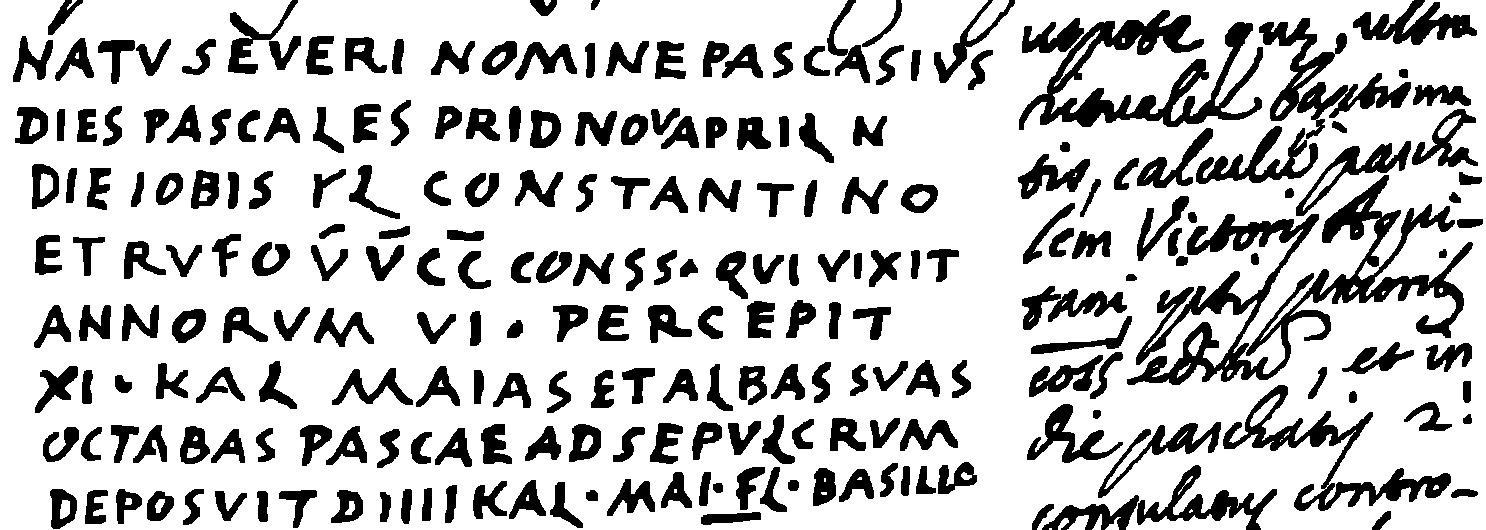 NATV SEVERI NOMINE PASCASIVS
DIES PASCALES PRID NOVAPRIL N
DIE IOBIS FL CONSTANTINO
ET RVFO V̄ V̄ C̄ C̄ CONSS· QVI VIXIT
ANNORVM VI · PERCEPIT
XI · KAL MAIAS ET ALBAS SVAS
OCTABAS PASCAE AD SEPVLCRVM
DEPOSVIT D IIII KAL · MAI · FL · BASILIO
ultra
baptisma
tis, pascha
lem Victorij Aqui-
tani
coss et in
die paschatis 2!
contro-